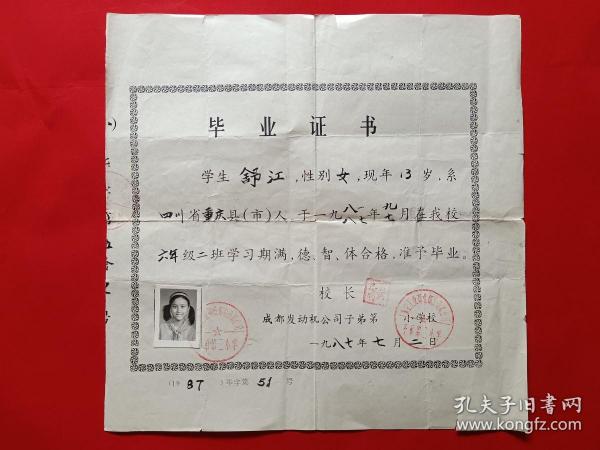 毕业证书
学生舒江，性别女，现年13岁，系
四川省重庆县（市）人，于一九八一八七年九七月在我校
六年级二班学习期满，德、智、体合格，准予毕业。
校长
成都发动机公司子弟第 小学校
一九八七年七月二日
（19 87 ）毕字第 51 号
孔夫子旧书网
www.kongfz.com